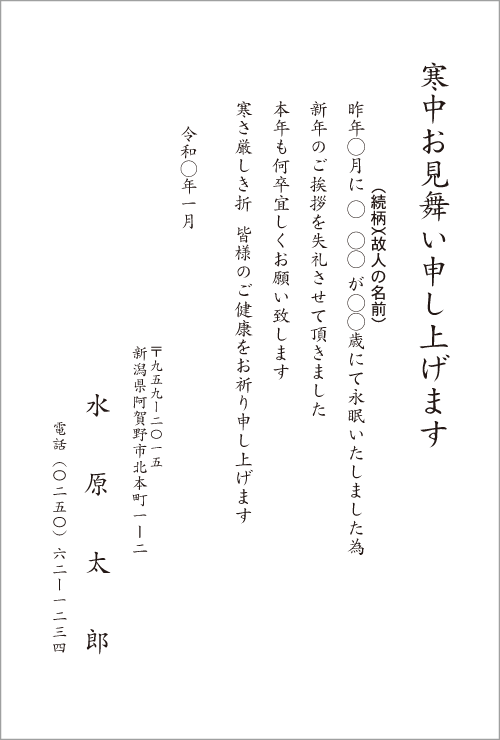 寒中お見舞い申し上げます
（続柄）（故人の名前）
昨年〇月に 〇 〇〇 が〇〇歳にて永眠いたしました為
新年のご挨拶を失礼させて頂きました
本年も何卒宜しくお願い致します
寒さ厳しき折 皆様のご健康をお祈り申し上げます
令和〇年一月
〒九五九ー二〇一五
新潟県阿賀野市北本町一ー二
水原太郎
電話（〇二五〇）六二ー一二三四